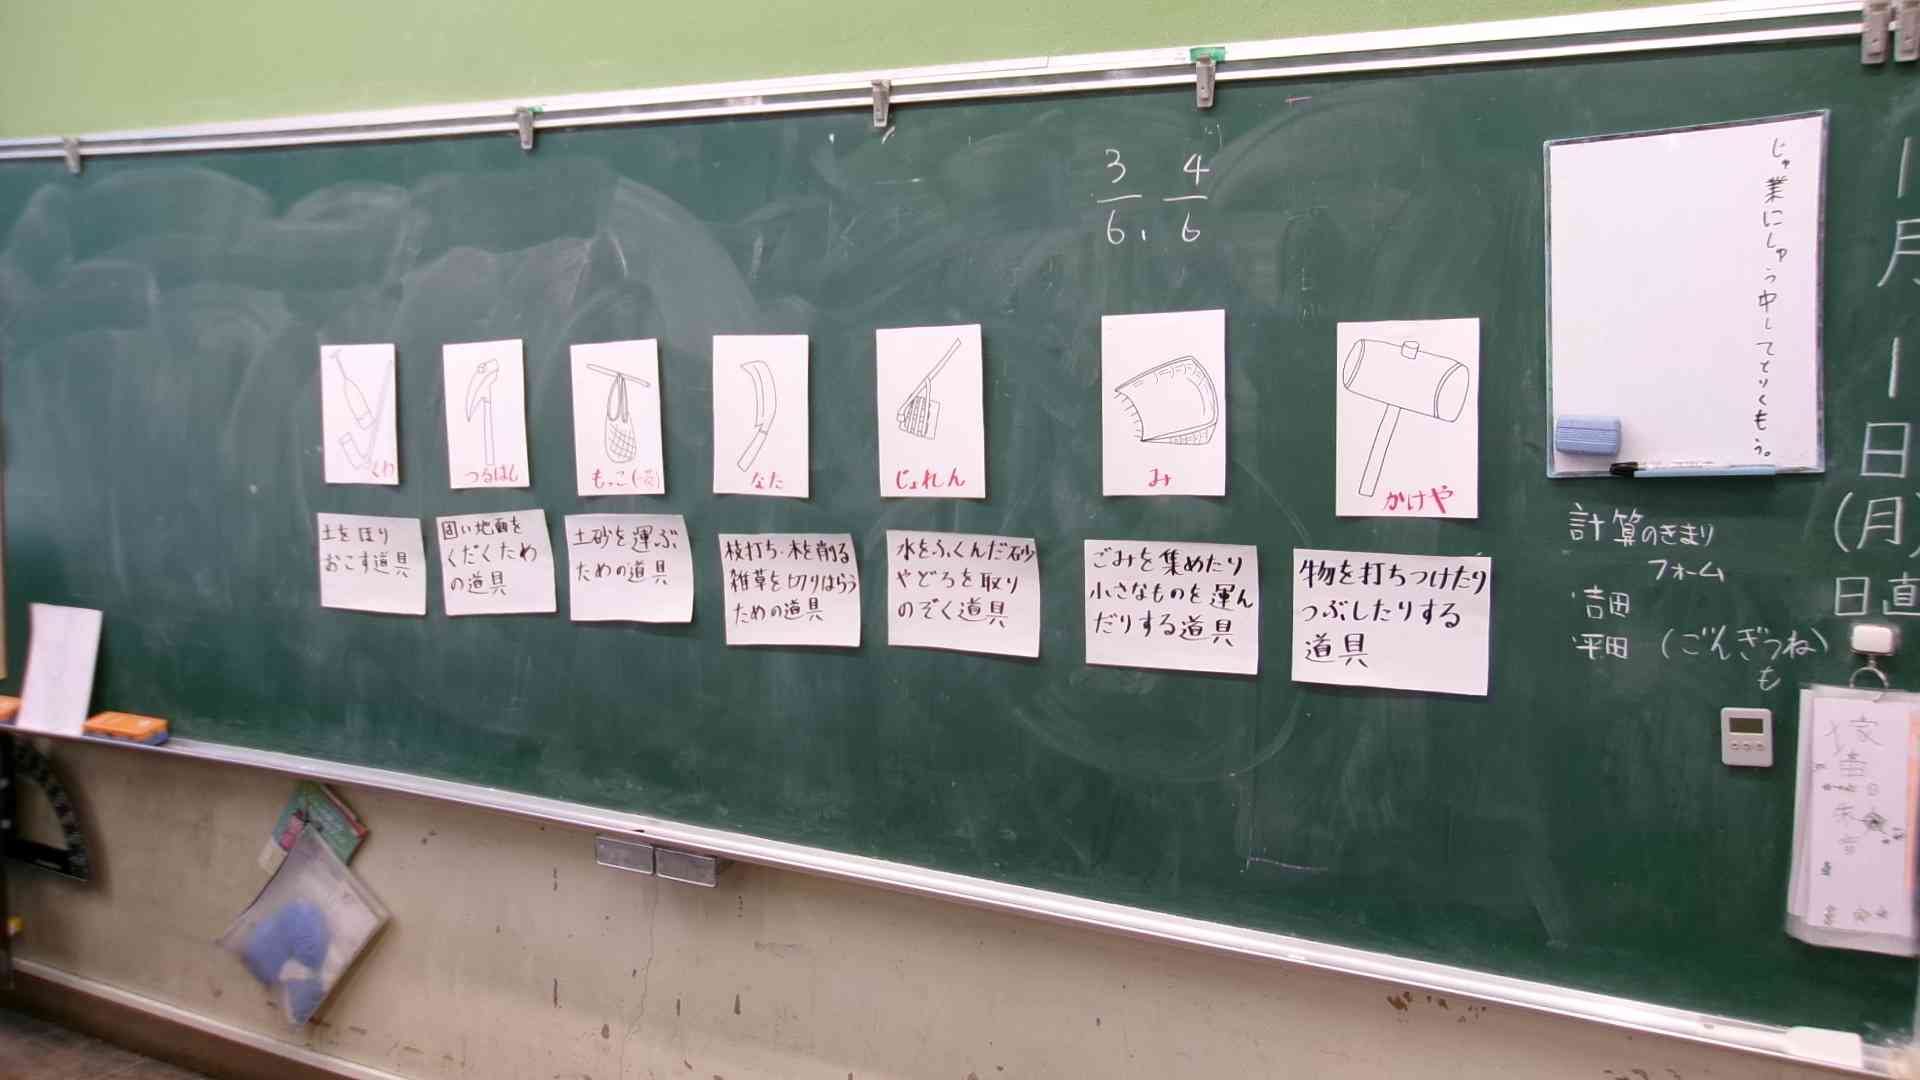 3/6、4/6
くわ
つるはし
もっこ
なた
じょれん
み
かけや
土をほり
おこす道具
固い地面を
くだくため
の道具
土砂を運ぶ
ための道具
枝打ち・木を削る
雑草を切りはらう
ための道具
水をふくんだ砂
やどろを取り
のぞく道具
ごみを集めたり
小さなものを運ん
だりする道具
物を打ちつけたり
つぶしたりする
道具
じゅ業にしゅう中してとりくもう。
計算のきまり
フォーム
・吉田
・平田 (ごんぎつね)
も
11月
11日
(月)
日直